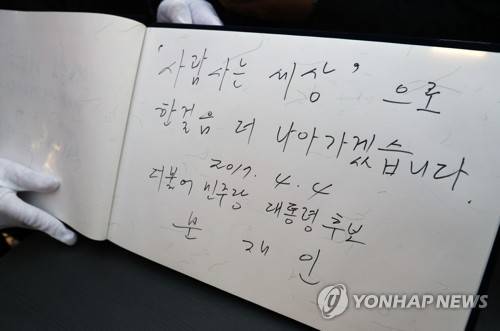 '사람사는 세상'으로
한걸음 더 나아가겠습니다.
2017. 4. 4
더불어 민주당 대통령 후보
문 재 인
YONHAP NEWS